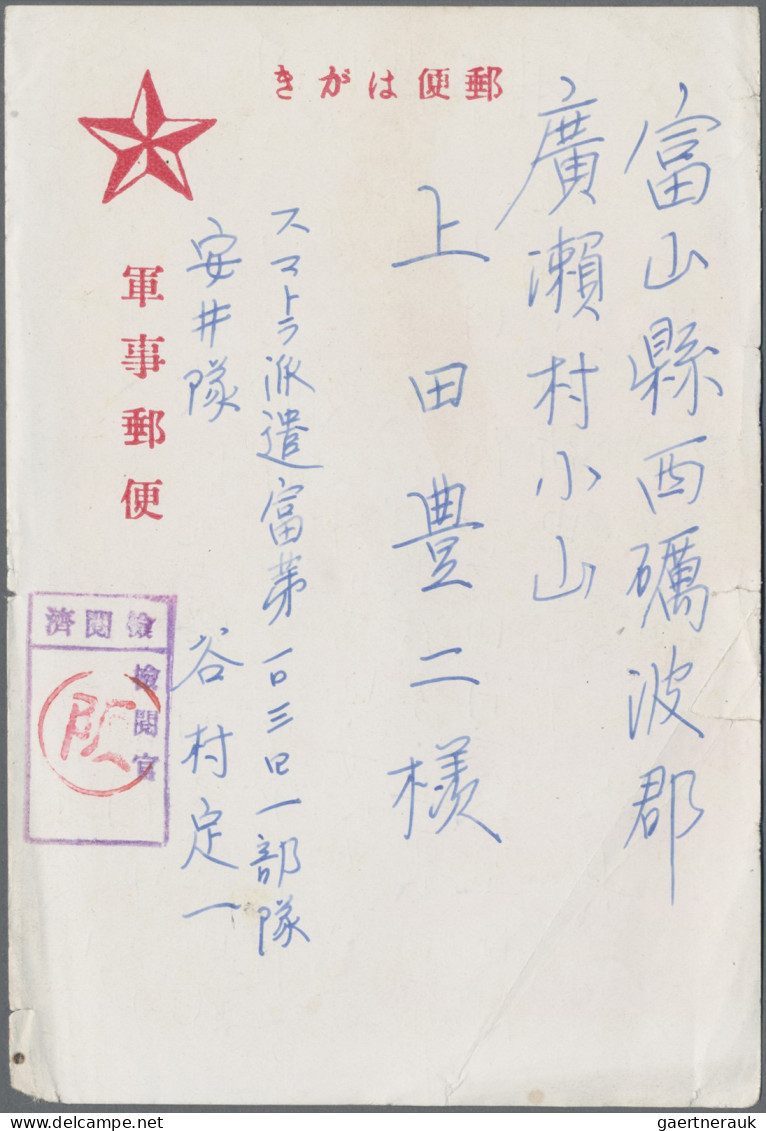 きがは便郵
富山縣西礪波郡
廣瀨村小山
上田豊二様
スマトラ派遣富第一〇三〇一部隊
安井隊 谷村定一
軍事郵便
濟閲檢
檢閲官
gaertnerauk